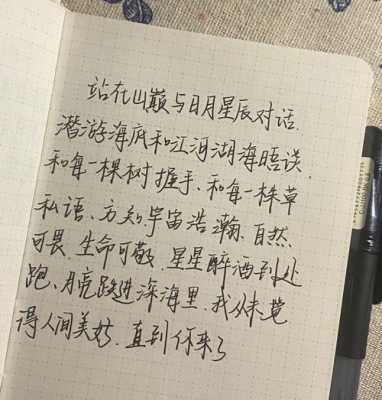 站在山巅与日月星辰对话.
潜游海底和江河湖海晤谈.
和每一棵树握手、和每一株草
私语、方知宇宙浩瀚、自然、
可畏、生命可敬、星星醉酒到处
跑、月亮跌进深海里、我从未觉
得人间美好、直到你来了